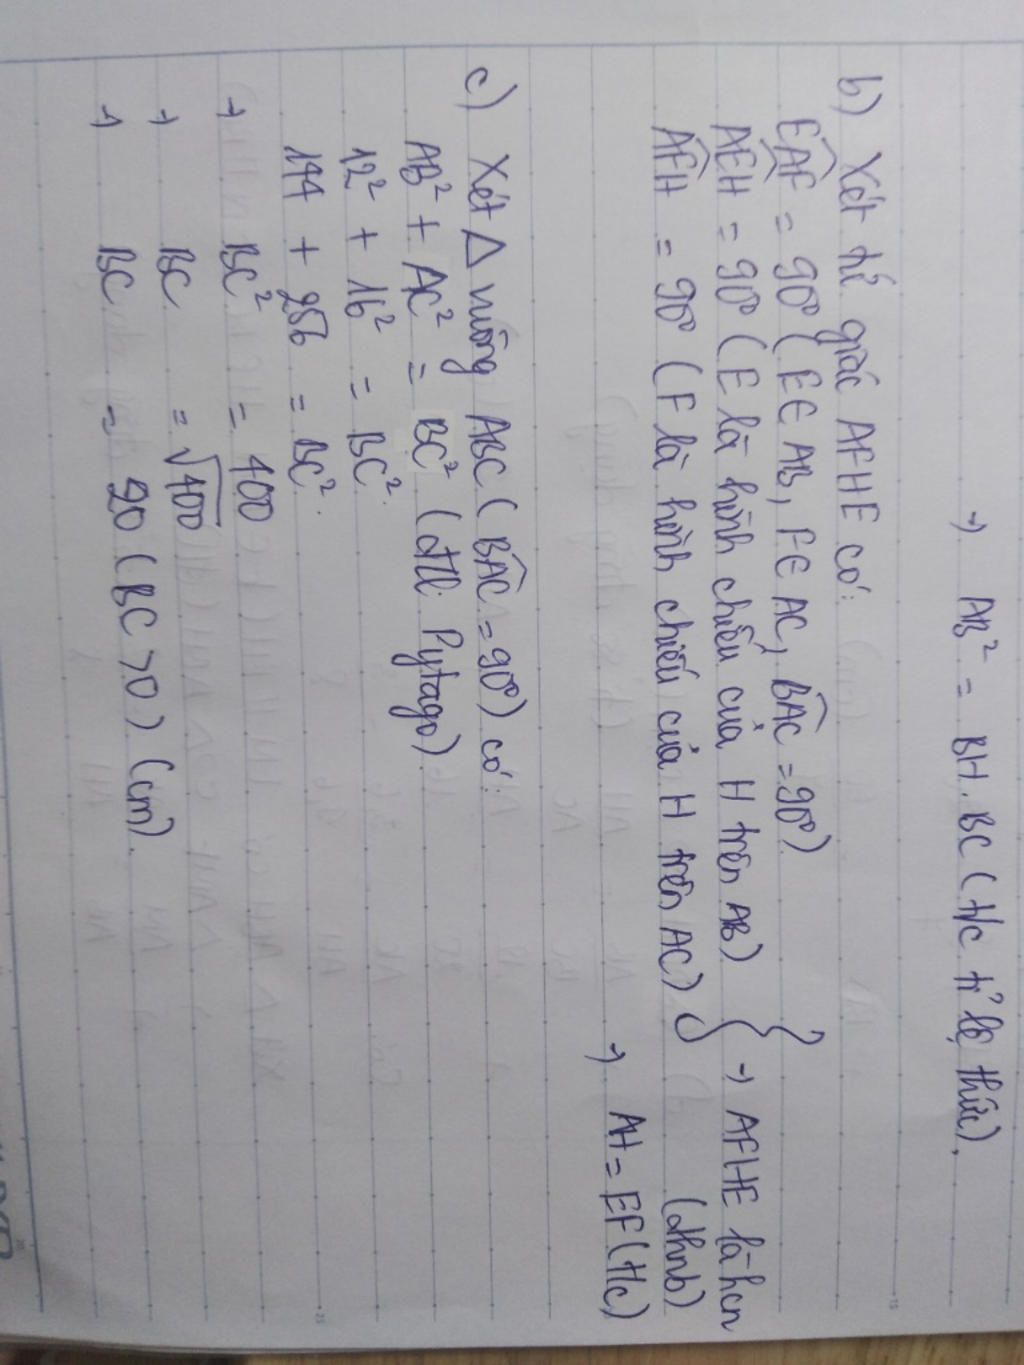 → AB² = BH. BC (t/c tỉ lệ thức).
b) Xét tứ giác AFHE có:
EAF = 90° (E∈AB, F∈AC, BAC = 90°)
AEH = 90° (E là hình chiếu của H trên AB)
AFH = 90° (F là hình chiếu của H trên AC)
→ AFHE là hcn
(dhnb)
→ AH = EF (t/c)
c) Xét Δ vuông ABC (BAC = 90°) có:
AB² + AC² = BC² (đ/l: Pytago)
12² + 16² = BC².
144 + 256 = BC².
→ BC² = 400
→ BC = √400
→ BC = 20 (BC > 0) (cm).